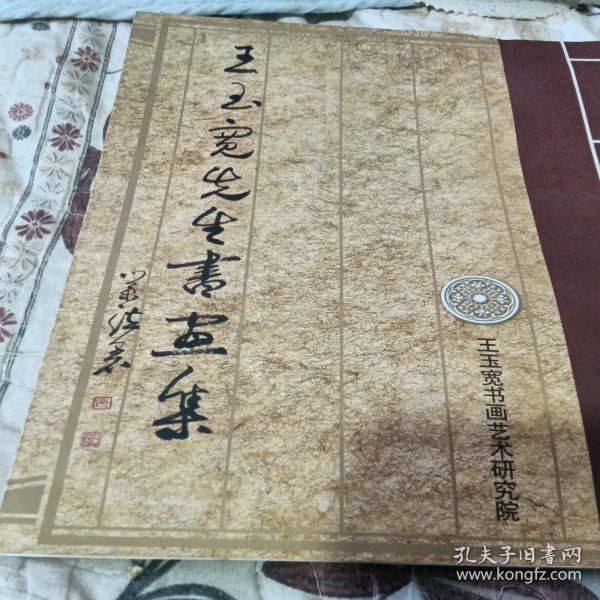 王玉宽先生書画集
王玉宽书画艺术研究院
孔夫子旧書网
www.kongfz.com